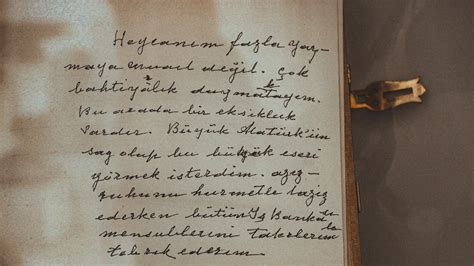 Heyecanım fazla yaz-
maya değil. Çok
bahtiyarlık duymaktayım.
Bu arada bir eksiklik
vardır. Büyük Atatürk'ün
sağ olup bu büyük eseri
görmek isterdim. aziz
ruhunu hürmetle taziz
ederken bütün İş Bankası
mensublarını takdirlerimle
tebrik ederim.